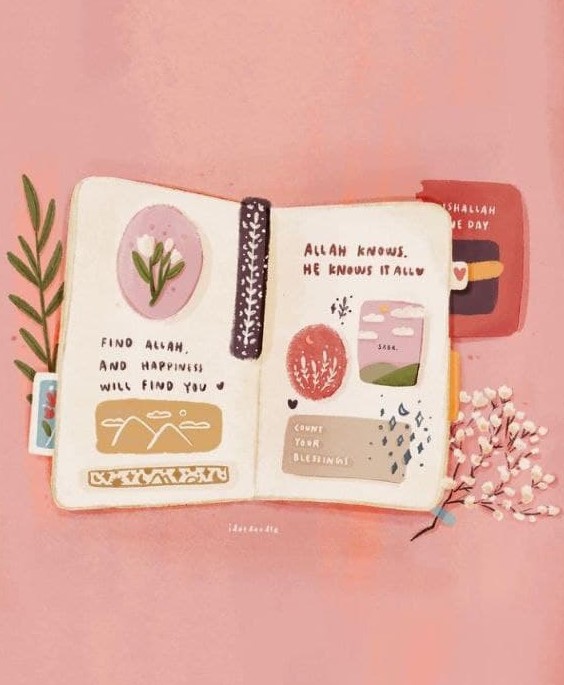 FIND ALLAH,
AND HAPPINESS
WILL FIND YOU
ALLAH KNOWS.
HE KNOWS IT ALL
SABR.
COUNT
YOUR
BLESSINGS
NSHALLAH
NE DAY